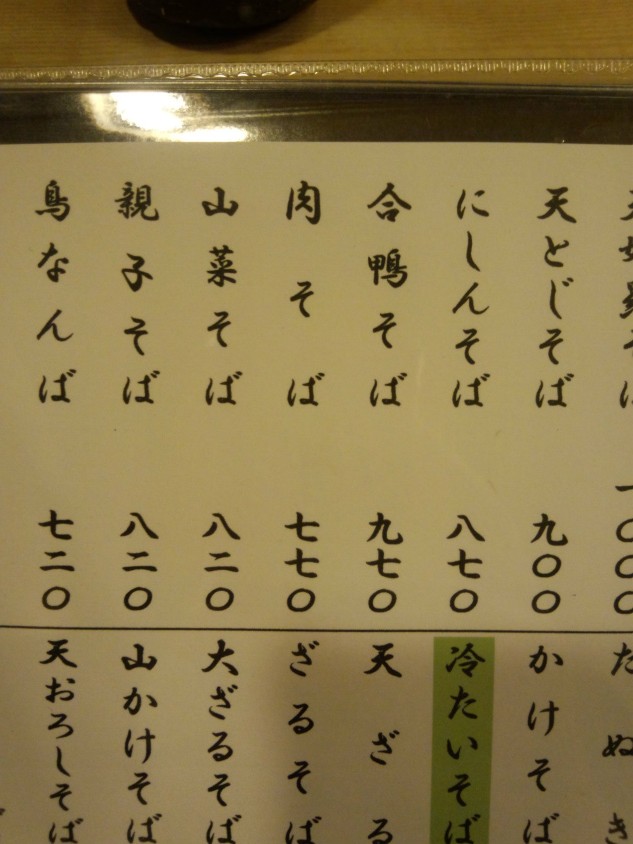 一〇〇〇
天とじそば 九〇〇
にしんそば 八七〇
合鴨そば 九七〇
肉そば 七七〇
山菜そば 八二〇
親子そば 八二〇
鳥なんば 七二〇
たぬき
かけそば
冷たいそば
天ざる
ざるそば
大ざるそば
山かけそば
天おろしそば